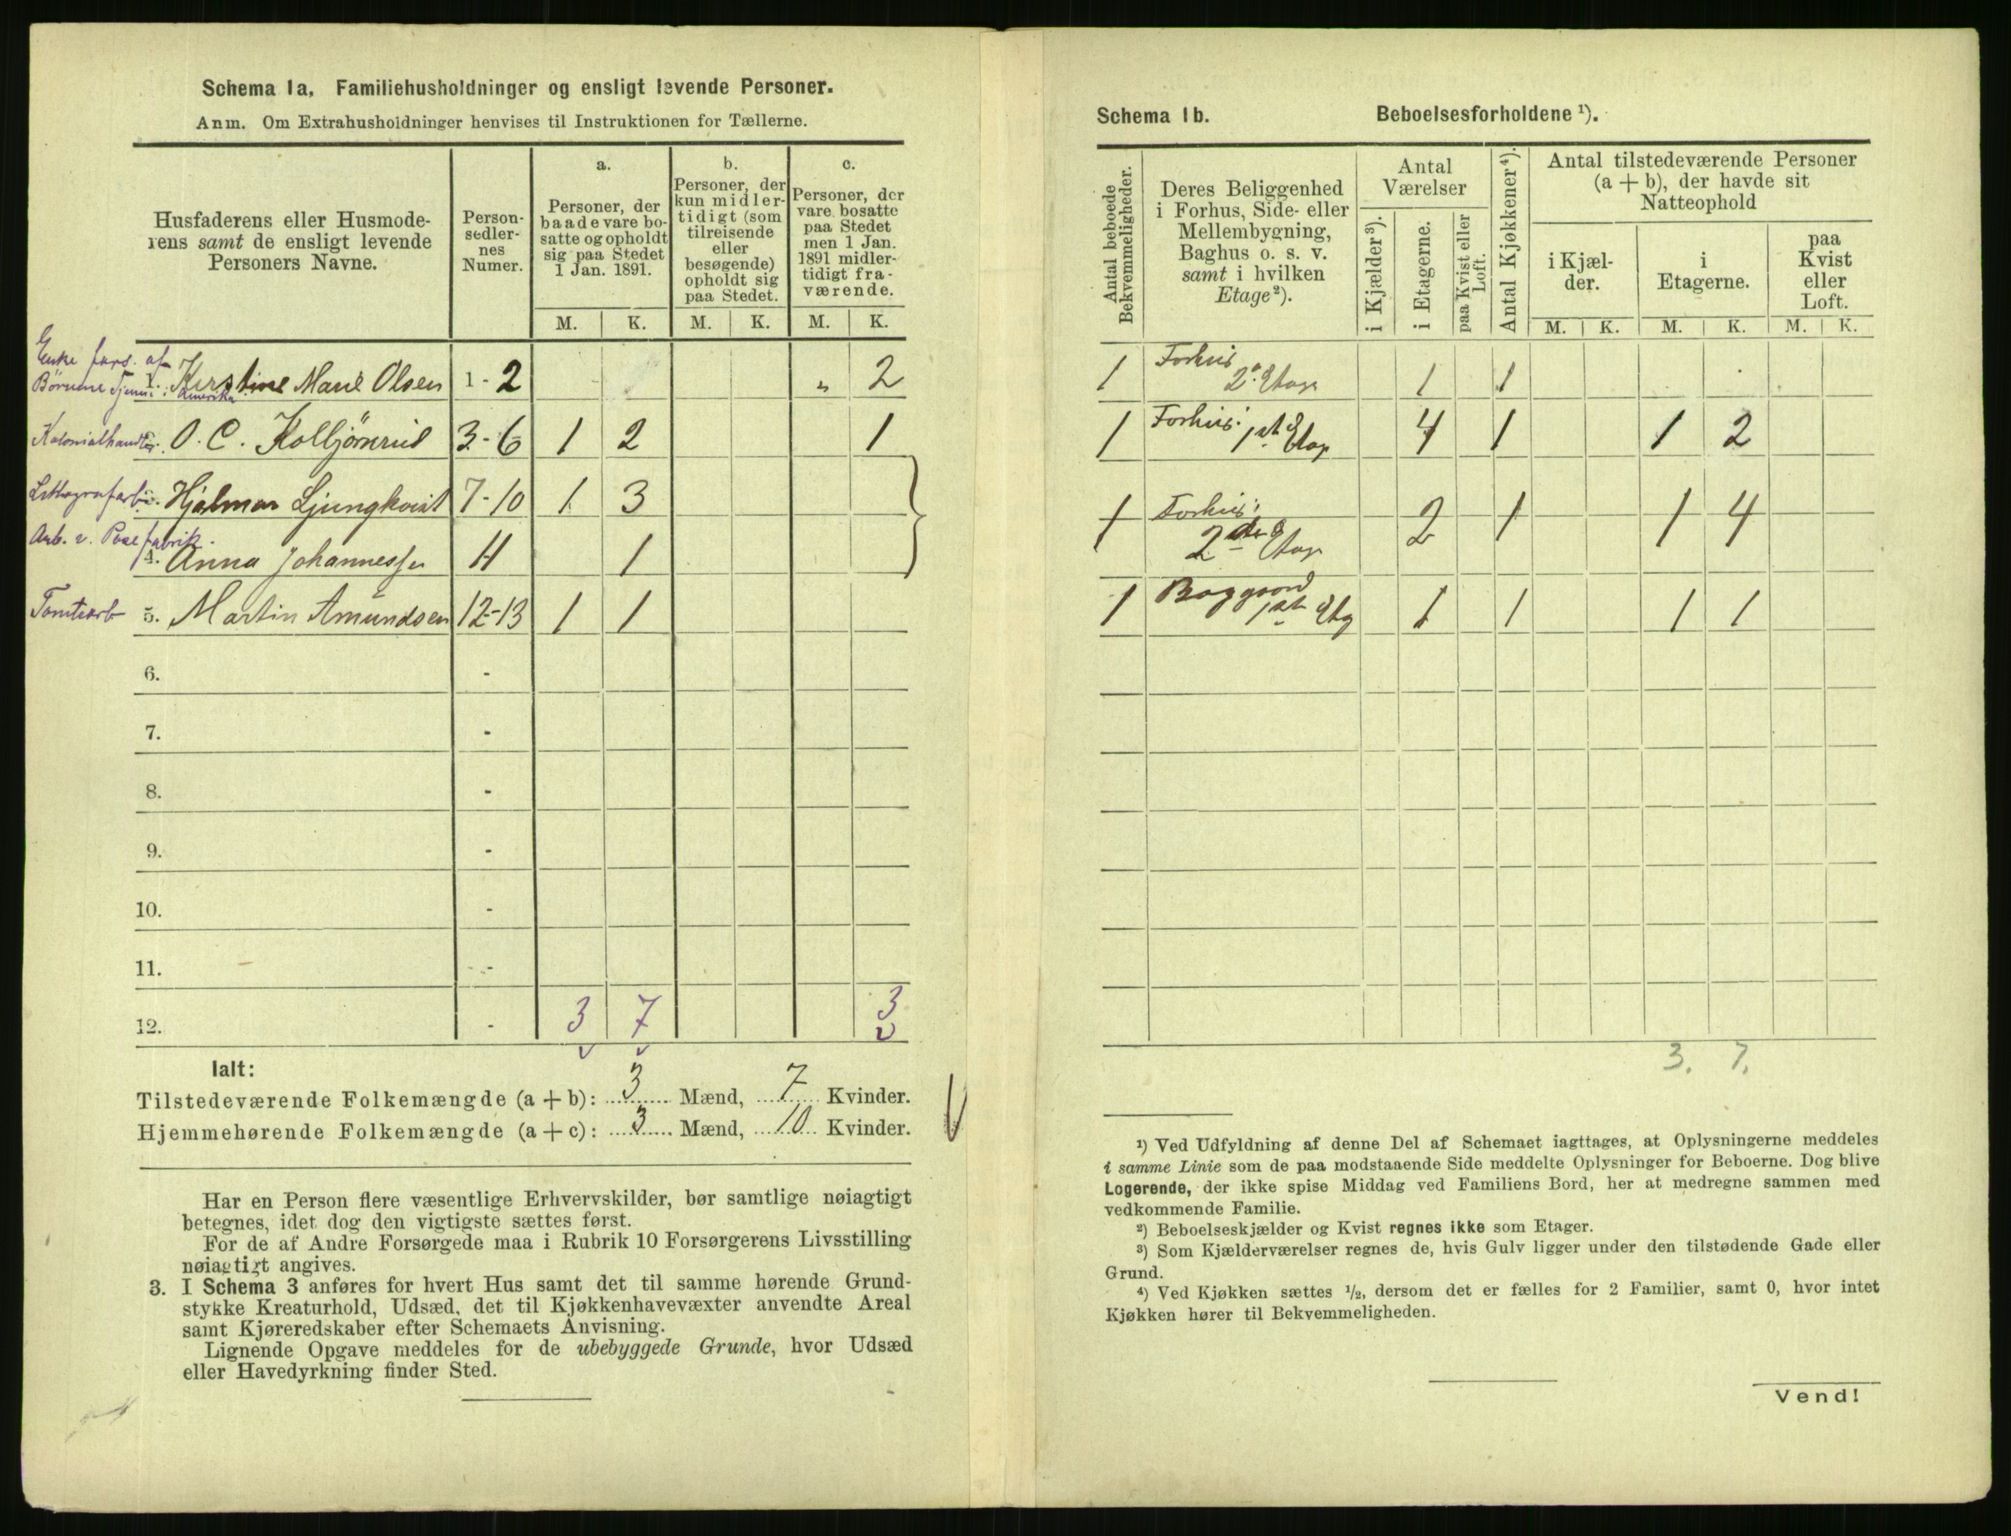 Schema 1a. Familiehusholdninger og ensligt levende Personer.
Anm. Om Extrahusholdninger henvises til Instruktionen for Tællerne.
Husfaderens eller Husmode-
rens samt de ensligt levende
Personers Navne.
Person-
sedler-
nes
Numer.
a.
Personer, der
baade vare bo-
satte og opholdt
sig paa Stedet
1 Jan. 1891.
b.
Personer, der
kun midler-
tidigt (som
tilreisende
eller
besøgende)
opholdt sig
paa Stedet.
c.
Personer, der
vare bosatte
paa Stedet
men 1 Jan.
1891 midler-
tidigt fra-
værende.
M. K. M. K. M. K.
Enke fors. af
Børnene Tjener i Amerika
1. Kirstine Marie Olsen 1-2 „ 2
Kolonialhandler
2. O. C. Kolbjørnrud 3-6 1 2 1
Lithografarb. 3. Hjalmar Ljungkvist 7-10 1 3
Arb. v. Posefabrik.
4. Anna Johannessen 11 1
Tomtearb 5. Martin Amundsen 12-13 1 1
6. -
7. -
8. -
9. -
10. -
11. -
12. - 3 7 3
Ialt:
Tilstedeværende Folkemængde (a + b): 3 Mænd, 7 Kvinder.
Hjemmehørende Folkemængde (a + c): 3 Mænd, 10 Kvinder.
Har en Person flere væsentlige Erhvervskilder, bør samtlige nøiagtigt
betegnes, idet dog den vigtigste sættes først.
For de af Andre Forsørgede maa i Rubrik 10 Forsørgerens Livsstilling
nøiagtigt angives.
3. I Schema 3 anføres for hvert Hus samt det til samme hørende Grund-
stykke Kreaturhold, Udsæd, det til Kjøkkenhavevæxter anvendte Areal
samt Kjøreredskaber efter Schemaets Anvisning.
Lignende Opgave meddeles for de ubebyggede Grunde, hvor Udsæd
eller Havedyrkning finder Sted.
Schema 1b. Beboelsesforholdene ¹).
Antal beboede
Bekvemmeligheder.
Deres Beliggenhed
i Forhus, Side- eller
Mellembygning,
Baghus o. s. v.
samt i hvilken
Etage²).
Antal
Værelser
i Kjælder³).
i Etagerne.
paa Kvist eller
Loft.
Antal Kjøkkener⁴).
Antal tilstedeværende Personer
(a + b), der havde sit
Natteophold
i Kjæl-
der.
i
Etagerne.
paa
Kvist
eller
Loft.
M. K. M. K. M. K.
1 Forhus 2. Etage 1 1
1 Forhus. 1ste Etage 4 1 1 2
1 Forhus. 2den Etage 2 1 1 4
1 Baggaard 1ste Etg 1 1 1 1
3. 7.
¹) Ved Udfyldning af denne Del af Schemaet iagttages, at Oplysningerne meddeles
i samme Linie som de paa modstaaende Side meddelte Oplysninger for Beboerne. Dog blive
Logerende, der ikke spise Middag ved Familiens Bord, her at medregne sammen med
vedkommende Familie.
²) Beboelseskjælder og Kvist regnes ikke som Etager.
³) Som Kjælderværelser regnes de, hvis Gulv ligger under den tilstødende Gade eller
Grund.
⁴) Ved Kjøkken sættes ½, dersom det er fælles for 2 Familier, samt 0, hvor intet
Kjøkken hører til Bekvemmeligheden.
Vend!